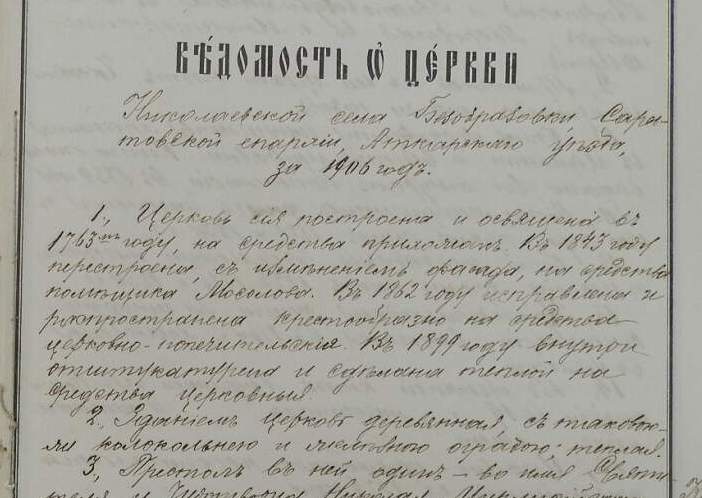 ВѢДОМОСТЬ Ѽ ЦЕ́РКВИ
Николаевской села Безобразовки Сара-
товской епархіи, Аткарскаго уѣзда,
за 1906 годъ.
1., Церковь сія построена и освящена въ
1763мъ году, на средства прихожанъ. Въ 1843 году
перестроена, съ измѣненіемъ фасада, на средства
помѣщика Мосолова. Въ 1862 году исправлена и
распространена крестообразно на средства
церковно-попечительскія. Въ 1899 году внутри
оштукатурена и сдѣлана теплой на
средства церковныя
2., Зданіемъ церковь деревянная, съ таковою-
же колокольнею и оградою; теплая.
3., Престолъ въ ней одинъ - во имя Святи-
теля и Чудотворца Николая